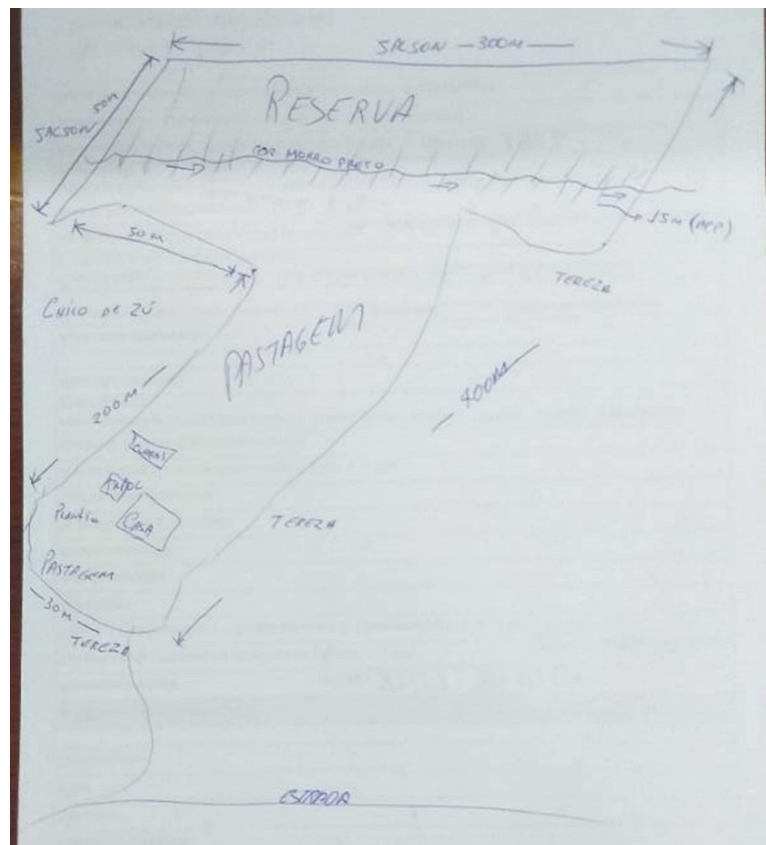 JACSON — 300M —
50M
JACSON
RESERVA
COR MORRO PRETO
15m (APP)
50M
TEREZA
CHICO DE ZÚ
PASTAGEM
400M
200M
CURRAL
PAIOL
CASA
TEREZA
PASTAGEM
30M
TEREZA
ESTRADA